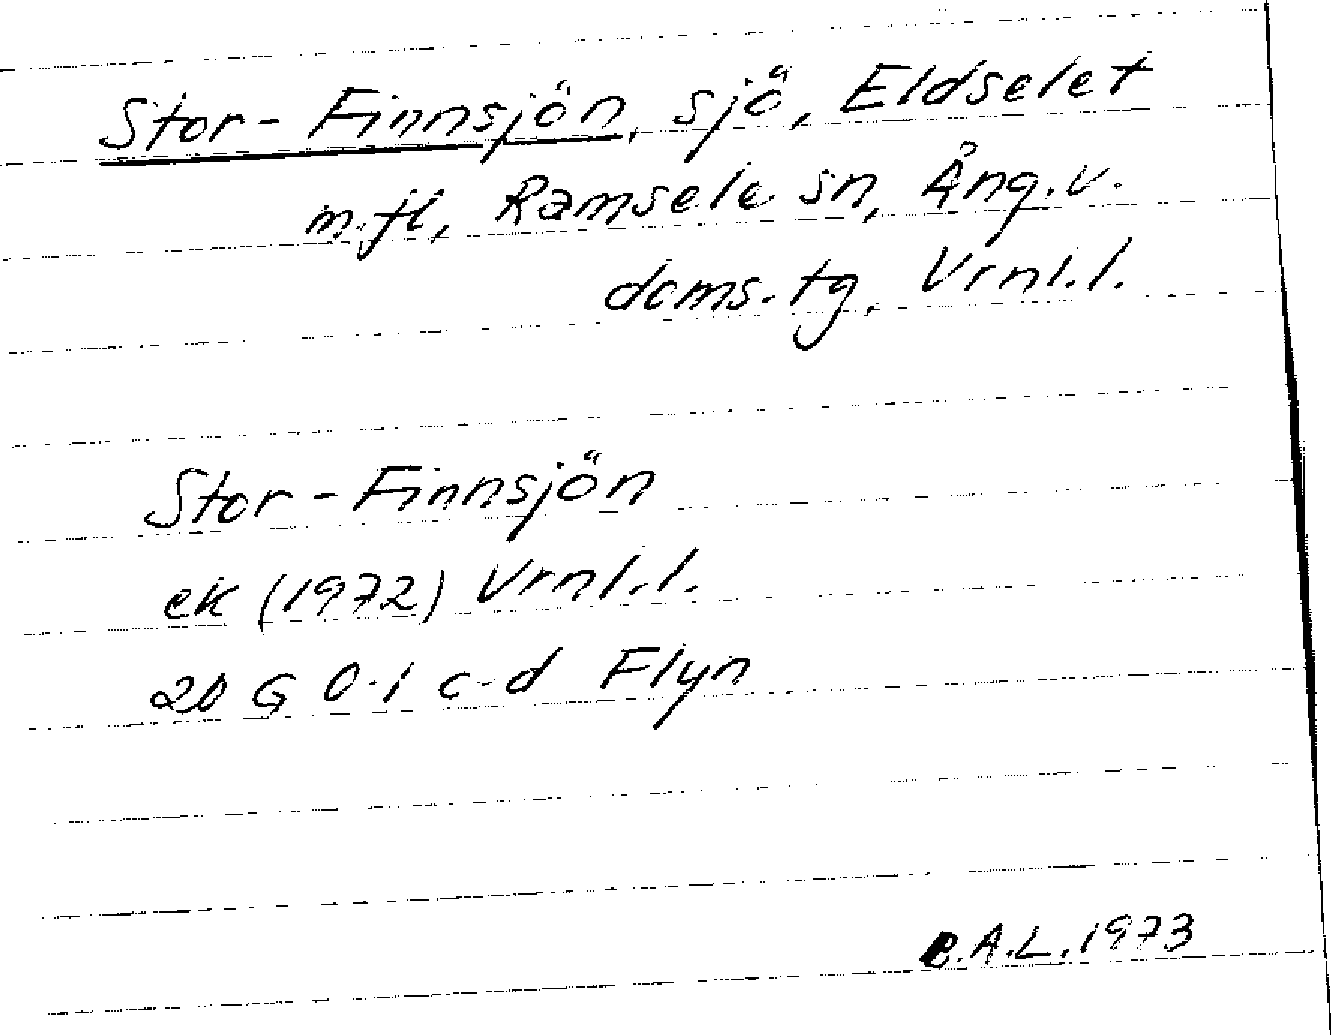 Stor-Finnsjön, sjö, Eldselet
m.fl, Ramsele sn, Ång.v.
doms.tg, Vrnl.l.
Stor-Finnsjön
ek (1972) Vrnl.l.
20 G 0-1 c-d Flyn
B.A.L. 1973